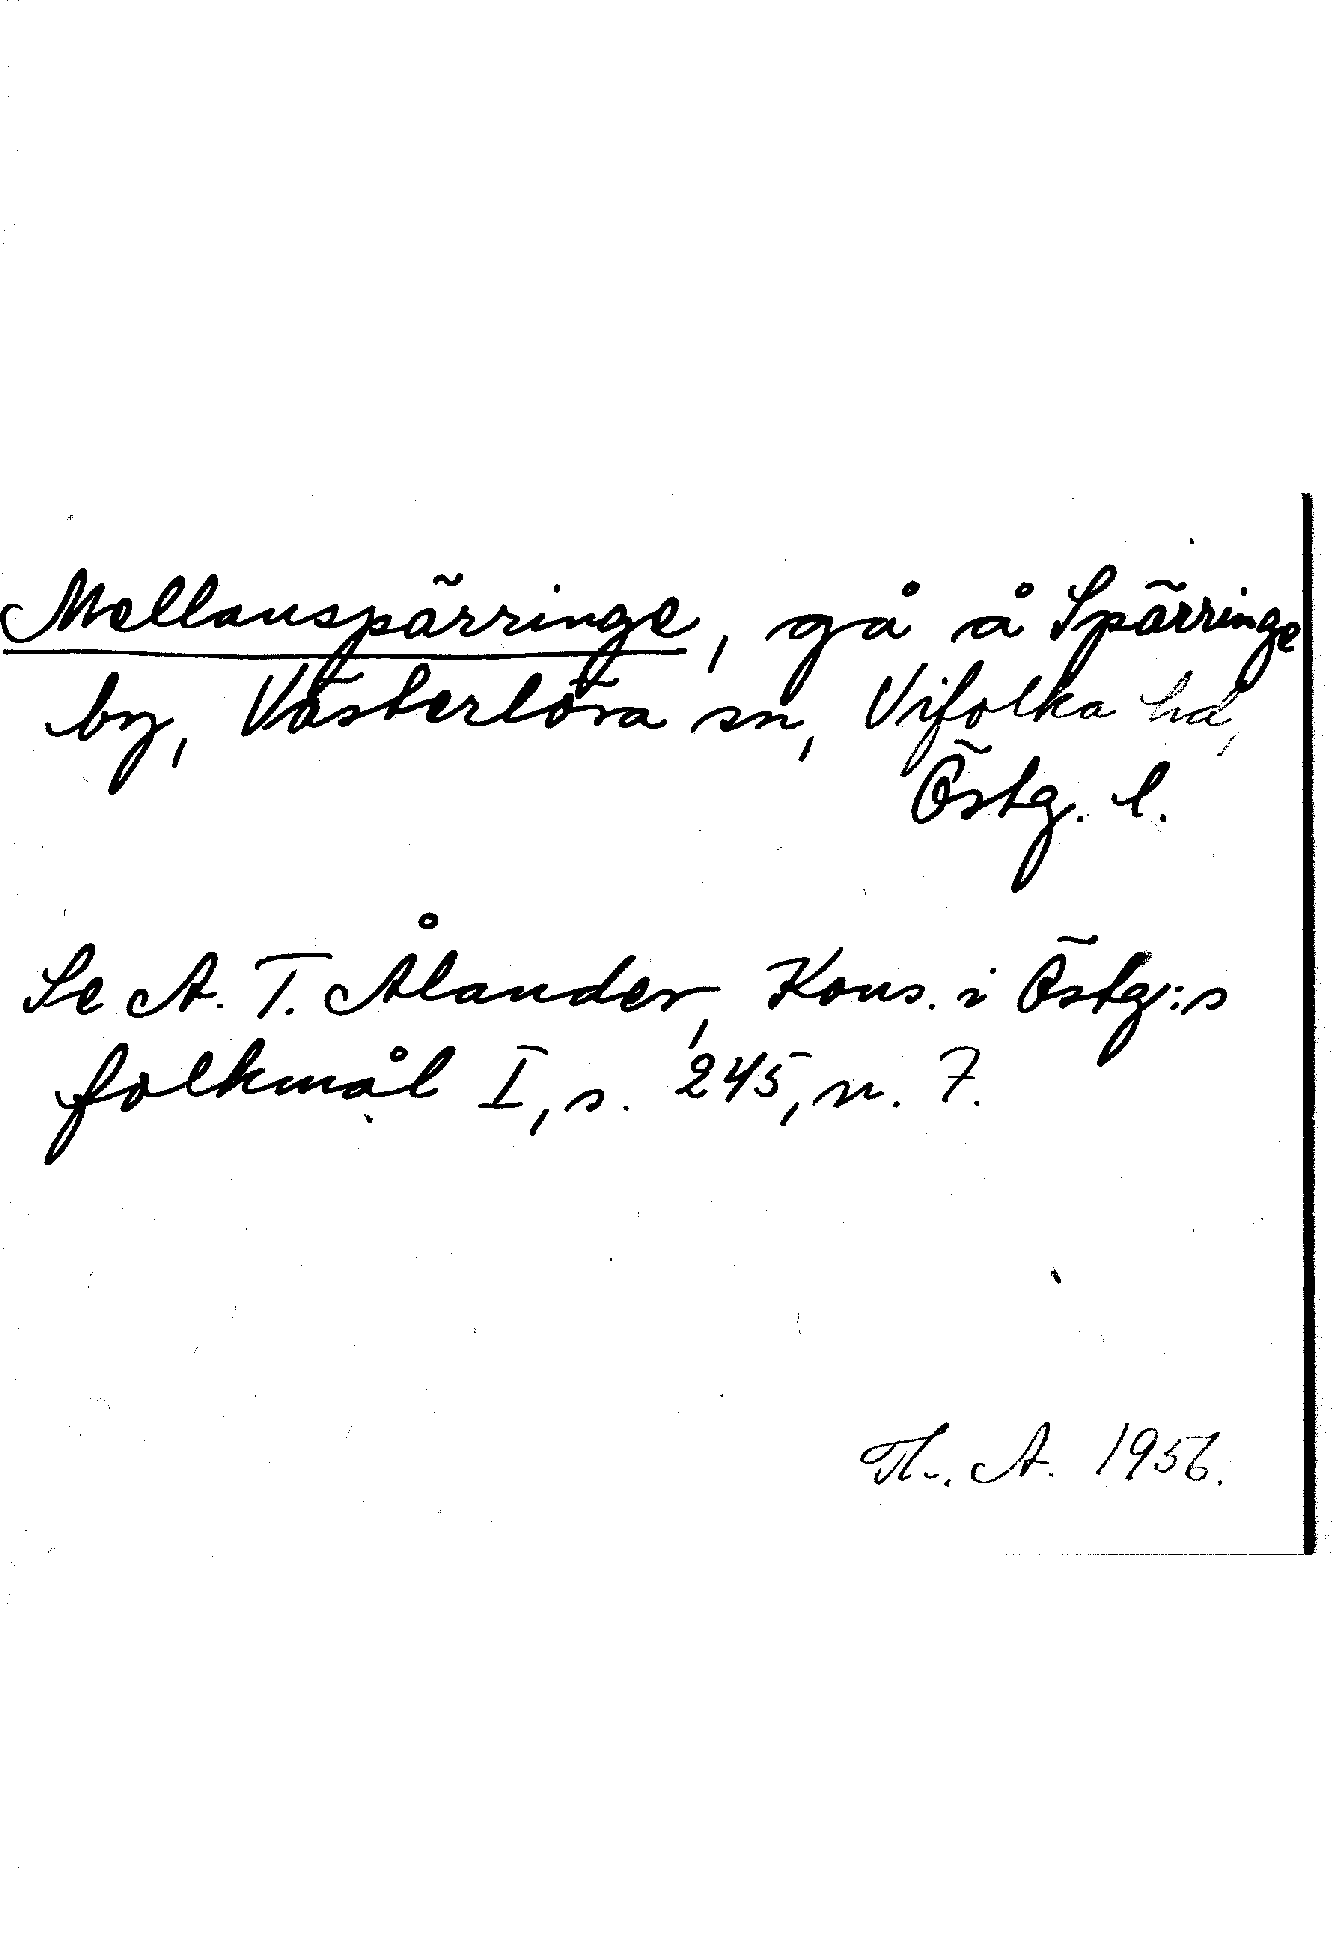 Mellanspärringe, gå å Spärringe
by, Västerlösa sn, Vifolka hd,
Östg. l.
Se A. T. Ålander, Kons. i Östg:s
folkmål I, s. 245, n. 7.
Th. A. 1956.